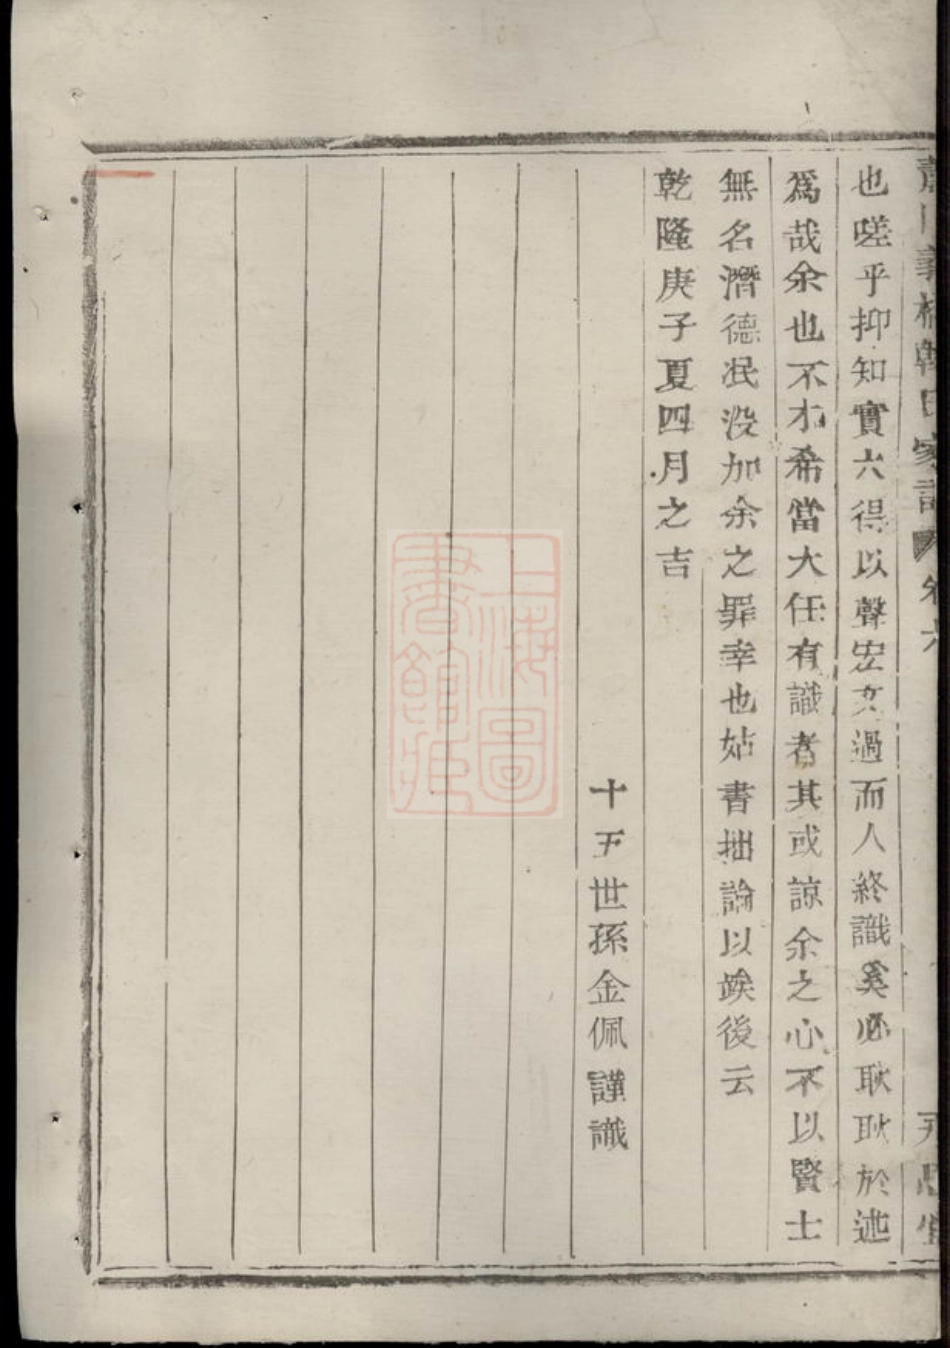 蕭山義橋韓氏家譜 卷六
也嗟乎抑知實六得以聲宏文過而人終識奚必耿耿於述
爲哉余也不才希當大任有識者其或諒余之心不以賢士
無名潛德泯没加余之罪幸也姑書拙論以竢後云
乾隆庚子夏四月之吉
十五世孫金佩謹識
上海圖書館藏